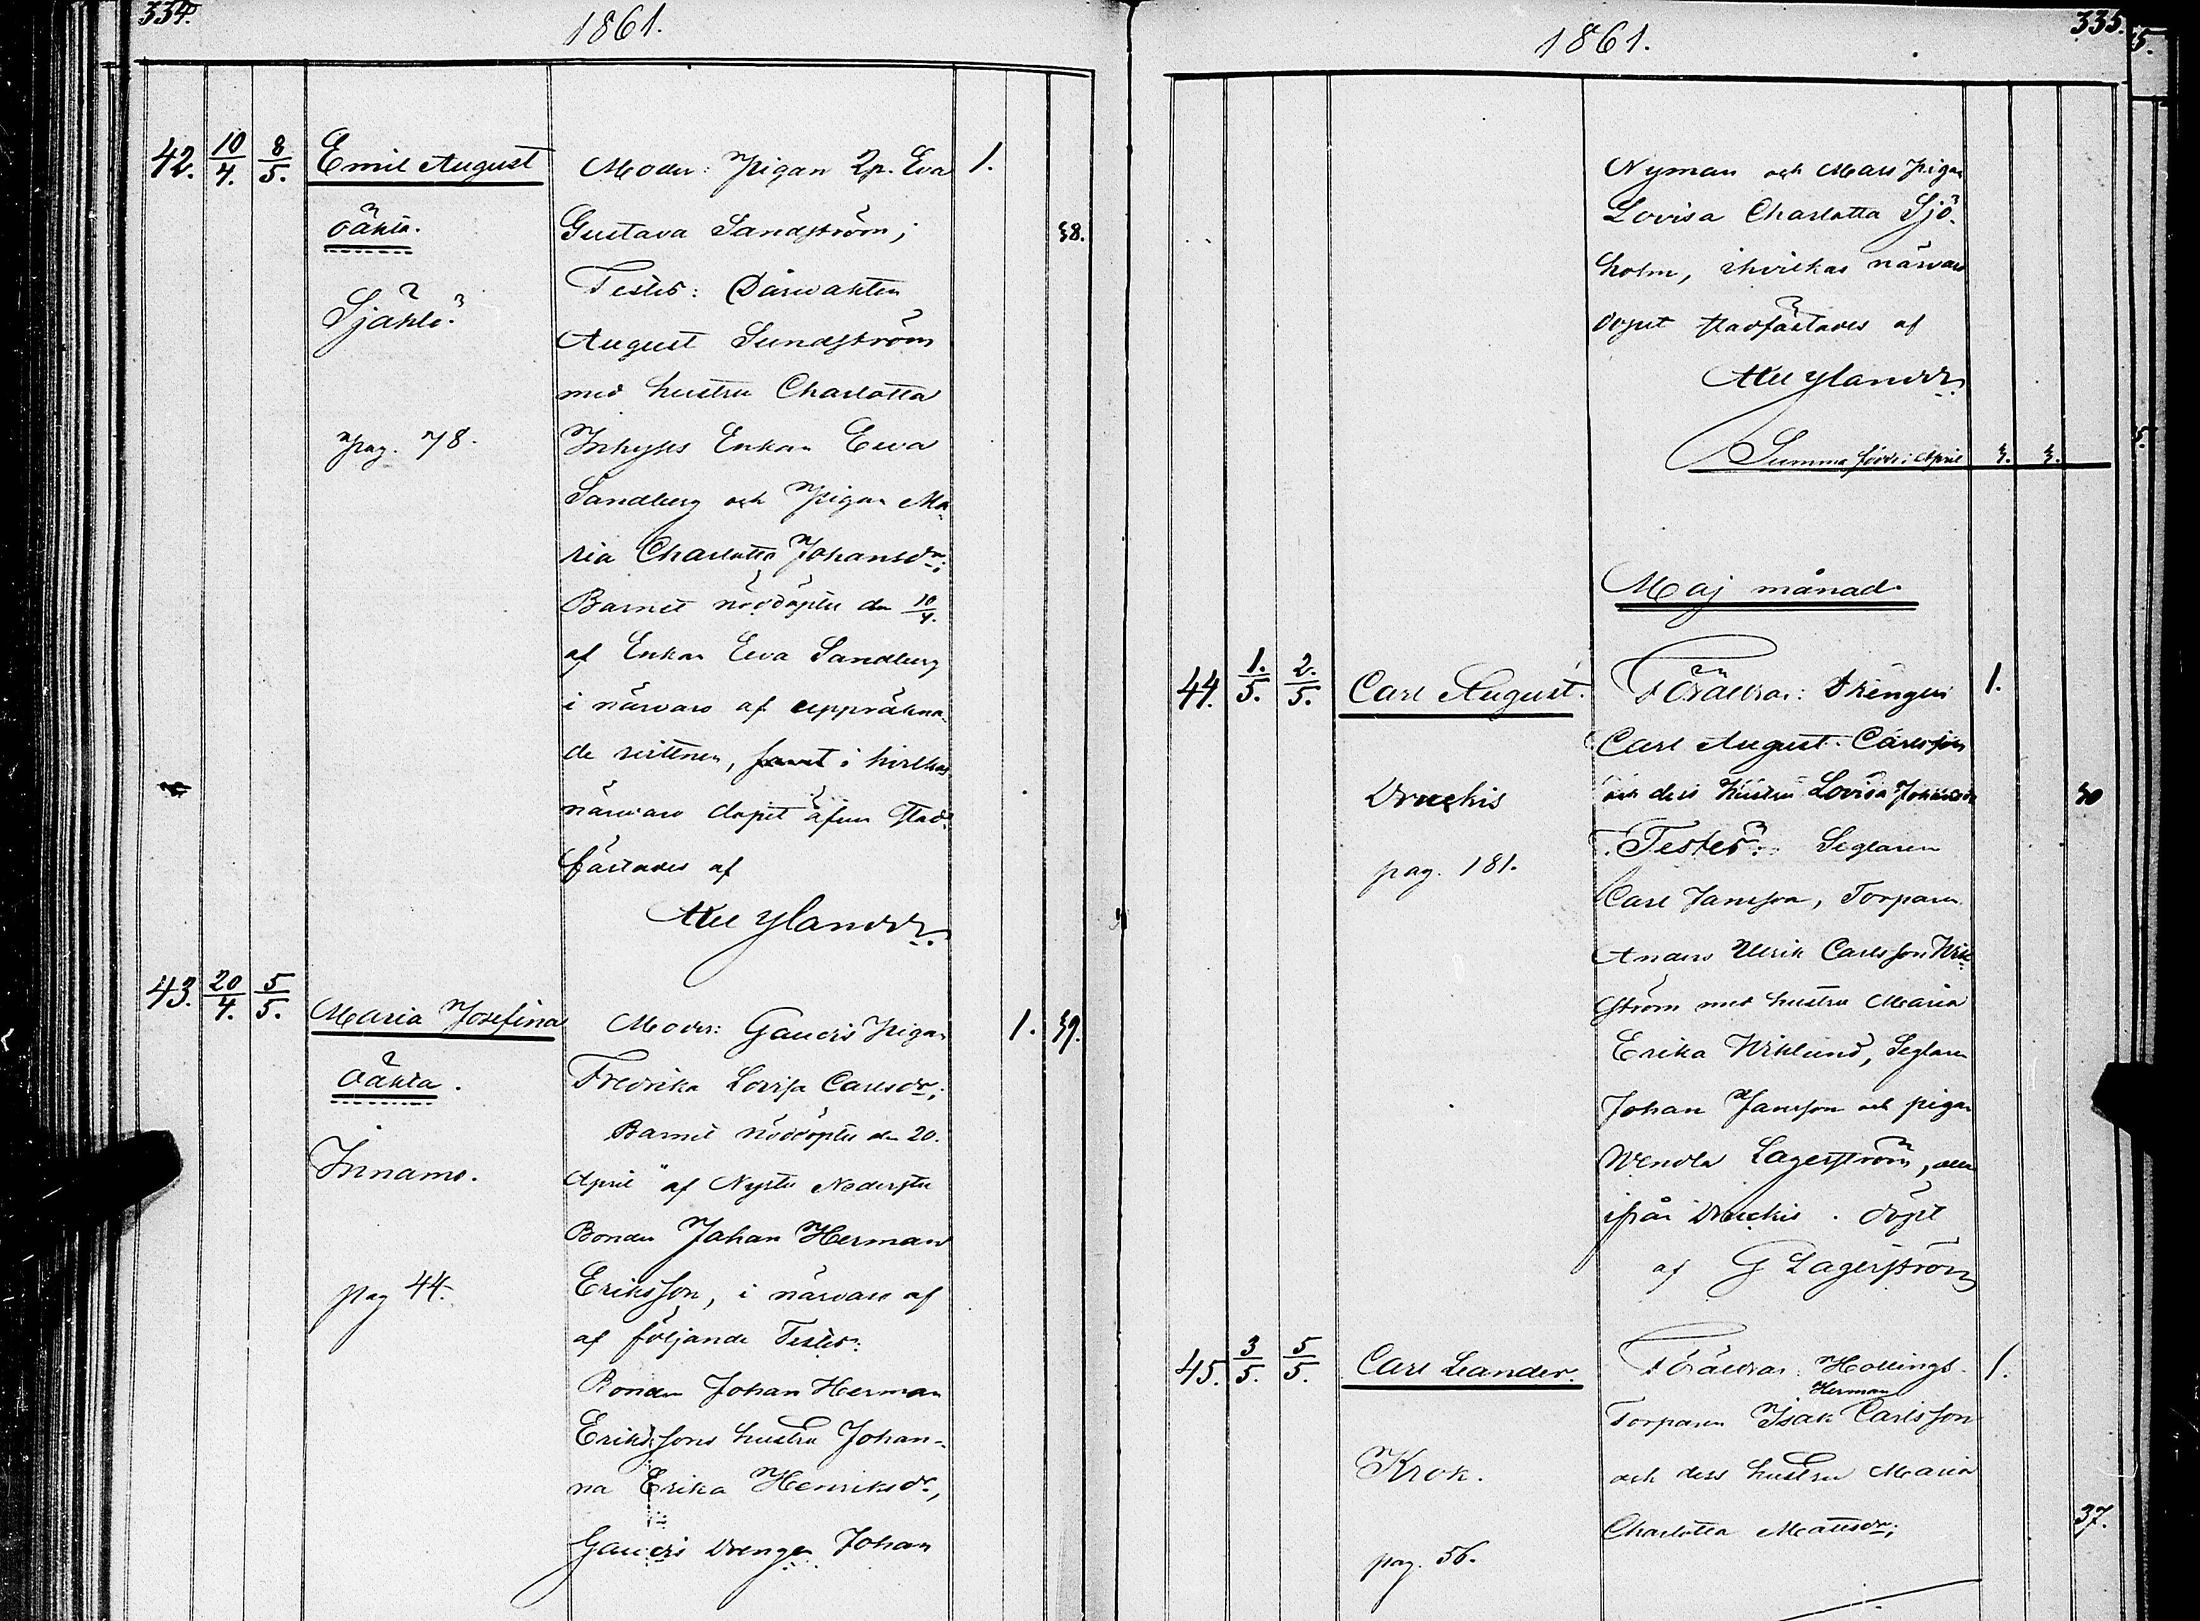 334.
1861.
42. 10/4. 8/5. Emil August Moder: Pigan Lp. Eva 1.
oäkta. Gustava Sandström; 38.
Själö. Testes: Dårvakten
August Sundström
med hustru Charlotta
pag. 78. Inhyses Enkan Eva
Sandberg och Pigan Ma-
ria Charlotta Johansdr;
Barnet nöddöptes den 10/4.
af Enkan Eva Sandberg
i närvaro af uppräkna-
de vittnen, i hvilkas
närvaro dopet äfven stad-
fästades af
Ylander.
43. 20/4. 5/5. Maria Josefina Moder: Pigan 1. 39.
oäkta. Fredrika Lovisa Carlsdr;
Barnet nöddöptes den 20.
Innamo. April af
Bonden Johan Herman
pag 44. Eriksson, i närvaro af
af följande Testes:
Bonden Johan Herman
Erikssons hustru Johan-
na Erika Henriksdr,
Drengen Johan
335.
1861.
Nyman och Pigan
Lovisa Charlotta Sjö-
holm, i hvilkas närvaro
dopet stadfästades af
Ylander.
Summa födde i April 3. 3.
Maj månad.
44. 1./5. 2./5. Carl August. Föräldrar: Drengen 1.
Carl August Carlsson
och dess hustru Lovisa 40
Testes: Seglaren
pag. 181.
Carl Jansson, Torparen
Anders Ulrik Carlsson Wik-
ström med hustru Maria
Erika Wiklund, Seglaren
Johan Jansson och pigan
Wendla Lagerström, alla
ifrån. Döpt
af G Lagerström
45. 3/5. 5/5. Carl Leander. Föräldrar: 1.
Herman
Torparen Isak Carlsson
Krok. och dess hustru Maria
Charlotta Mattsdr; 37.
pag. 56.